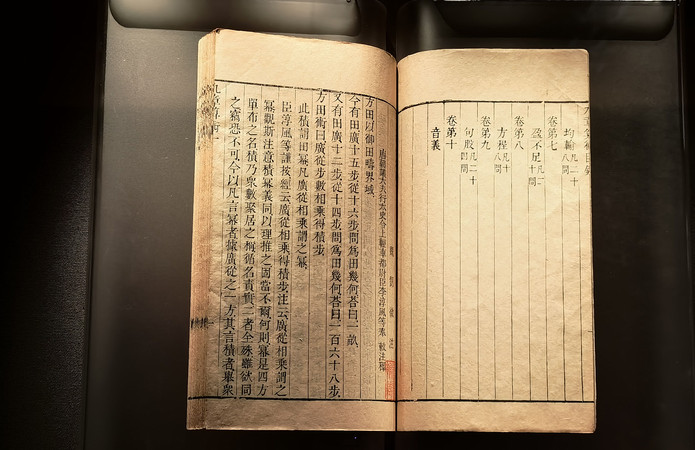 均輸凡二十八問
卷第七
盈不足凡二十問
卷第八
方程凡十八問
卷第九
句股凡二十四問
卷第十
音義
唐朝議大夫行太史令上輕車都尉臣李淳風等奉 敕注釋
方田以御田疇界域
今有田廣十五步從十六步問爲田幾何荅曰一畝
又有田廣十二步從十四步問爲田幾何荅曰一百六十八步
方田術曰廣從步數相乘得積步
此積謂田冪凡廣從相乘謂之冪
臣淳風等謹按經云廣從相乘得積步注云廣從相乘謂之
冪觀斯注意積冪義同以理推之固當不爾何則冪是四方
單布之名積乃衆數聚居之稱循名責實二者全殊雖欲同
之竊恐不可今以凡言冪者據廣從之一方其言積者舉衆